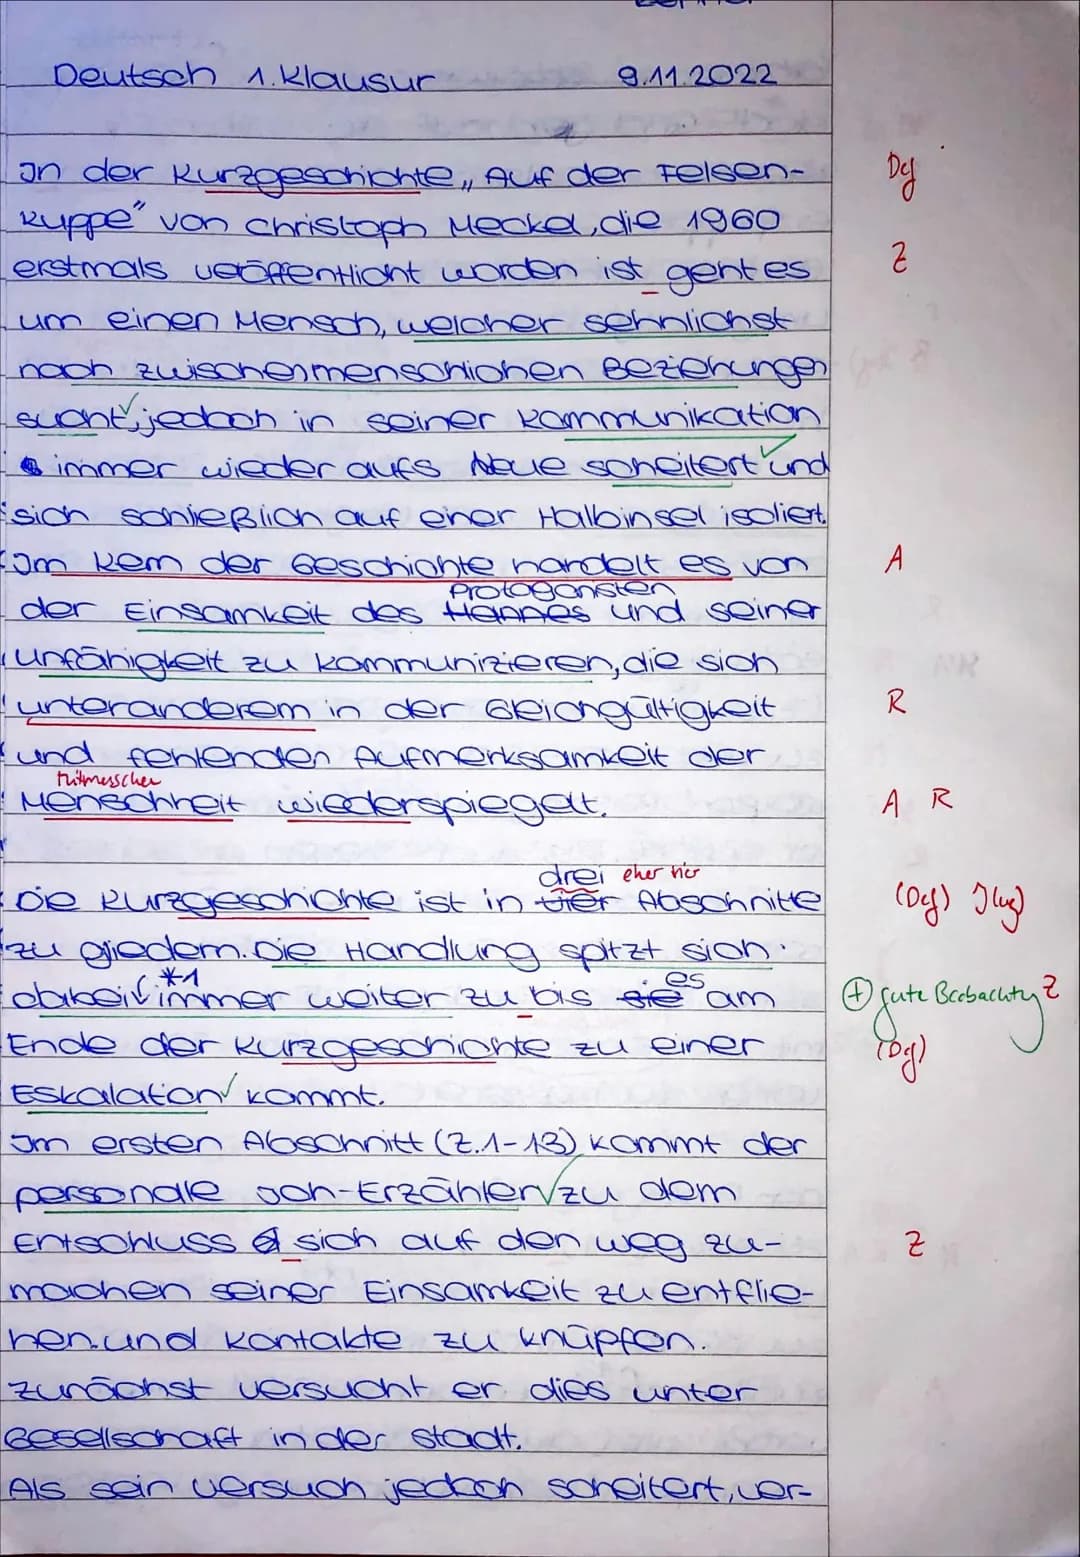 Deutsch 1. Klausur 9.11.2022
In der Kurzgeschichte „Auf der Felsen-
kuppe" von Christoph Meckel, die 1960
erstmals veröffentlicht worden ist geht es
um einen Mensch, welcher sehnlichst
nach zwischenmenschlichen Beziehungen
sucht, jedoch in seiner Kommunikation
immer wieder aufs Neue scheitert und
sich schießlich auf einer Halbinsel isoliert.
Im Kern der Geschichte handelt es von
A
Protagonisten
der Einsamkeit des Hannes und seiner
Unfähigkeit zu kommunizieren, die sich
unteranderem in der Gleichgültigkeit
R
und fehlenden Aufmerksamkeit der
Menschheit wiederspiegelt.
A R
drei eher vier
Die Kurzgeschichte ist in vier Abschnitte
zu gliedern. Die Handlung spitzt sich
*1 es
dabei immer weiter zu bis sie am
+ gute Beobachtung Z
Ende der Kurzgeschichte zu einer
Eskalation kommt.
Im ersten Abschnitt (Z.1-13) kommt der
personale Ich-Erzähler zu dem
Entschluss sich auf den weg zu-
Z
machen seiner Einsamkeit zu entflie-
hen und Kontakte zu knüpfen.
Zunächst versucht er dies unter
Gesellschaft in der Stadt.
Als sein Versuch jedoch scheitert, ver-